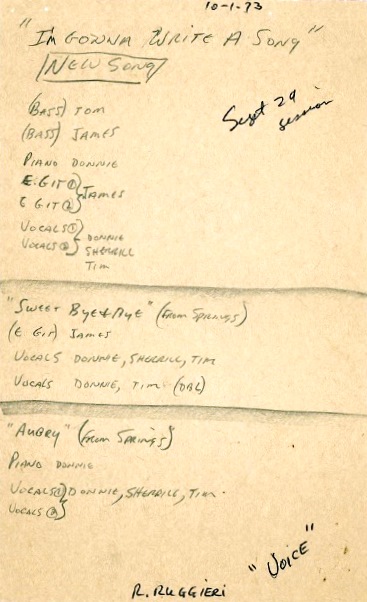 10-1-73
"I'M GONNA WRITE A SONG"
NEW SONG
Sept 29
session
(BASS) TOM
(BASS) JAMES
PIANO DONNIE
E. GIT ①
E GIT ②
JAMES
VOCALS ①
VOCALS ②
DONNIE
SHERRILL
TIM
"SWEET BYE & BYE" (FROM SPRINGS)
(E. GIT) JAMES
VOCALS DONNIE, SHERRILL, TIM
VOCALS DONNIE, TIM (DBL)
"AUBRY" (FROM SPRINGS)
PIANO DONNIE
VOCALS ① DONNIE, SHERRILL, TIM.
VOCALS ②
"VOICE"
R. RUGGIERI